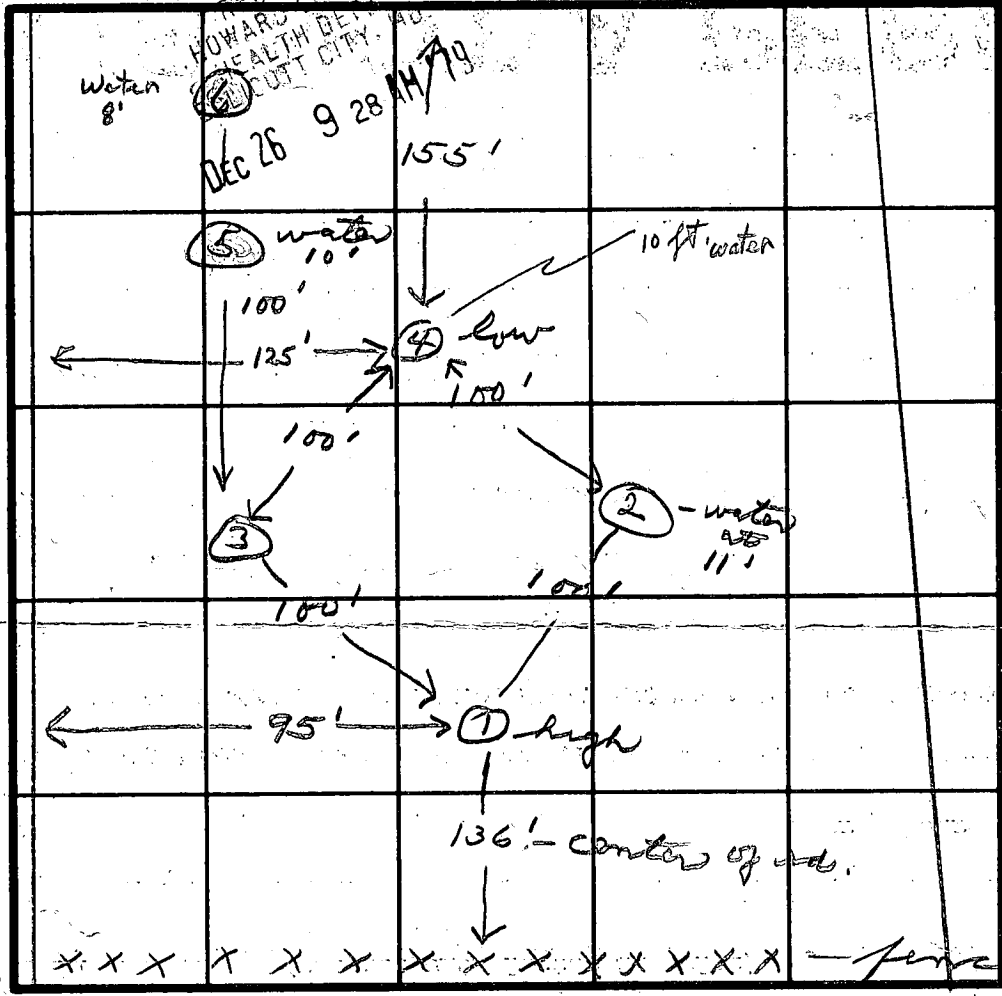 HOWARD
HEALTH DEPT
CITY, MD
DEC 26 9 28 AM '79
Water
8'
6
155'
5 water
10'
10 ft. water
100'
4 low
125'
100'
100'
3
2 - water
at
11'
100'
100'
95'
1 high
136' - center of rd.
X X X X X X X X X X X X X X - fence